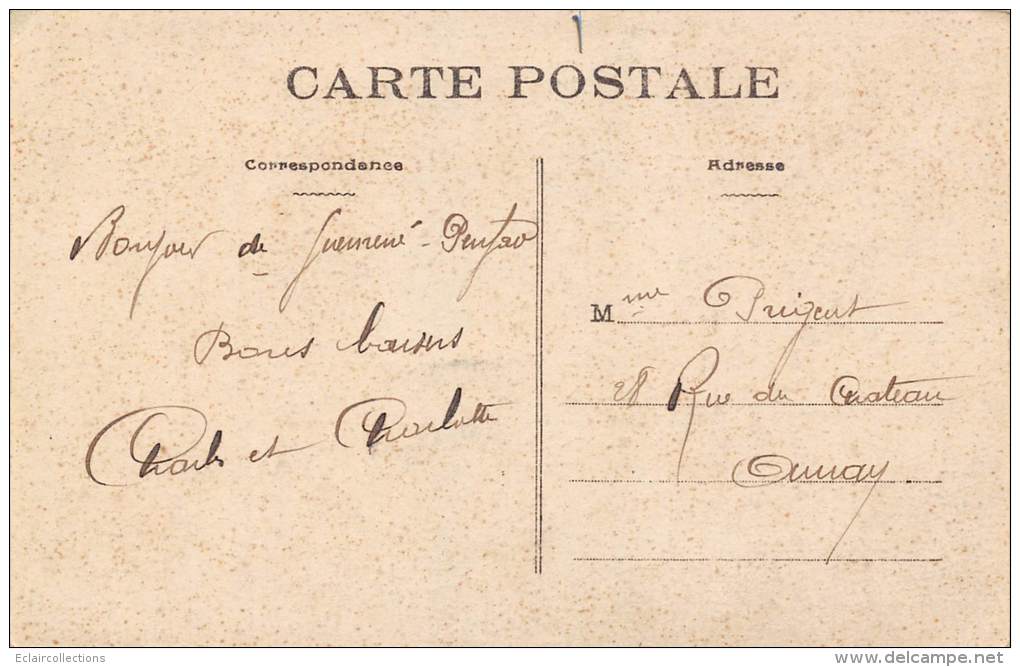 CARTE POSTALE
Correspondance
Bonjour de Guémené-Penfao
Bons baisers
Charles et Charlotte
Adresse
Mme Prigent
28 Rue du Chateau
Eclaircollections
www.delcampe.net